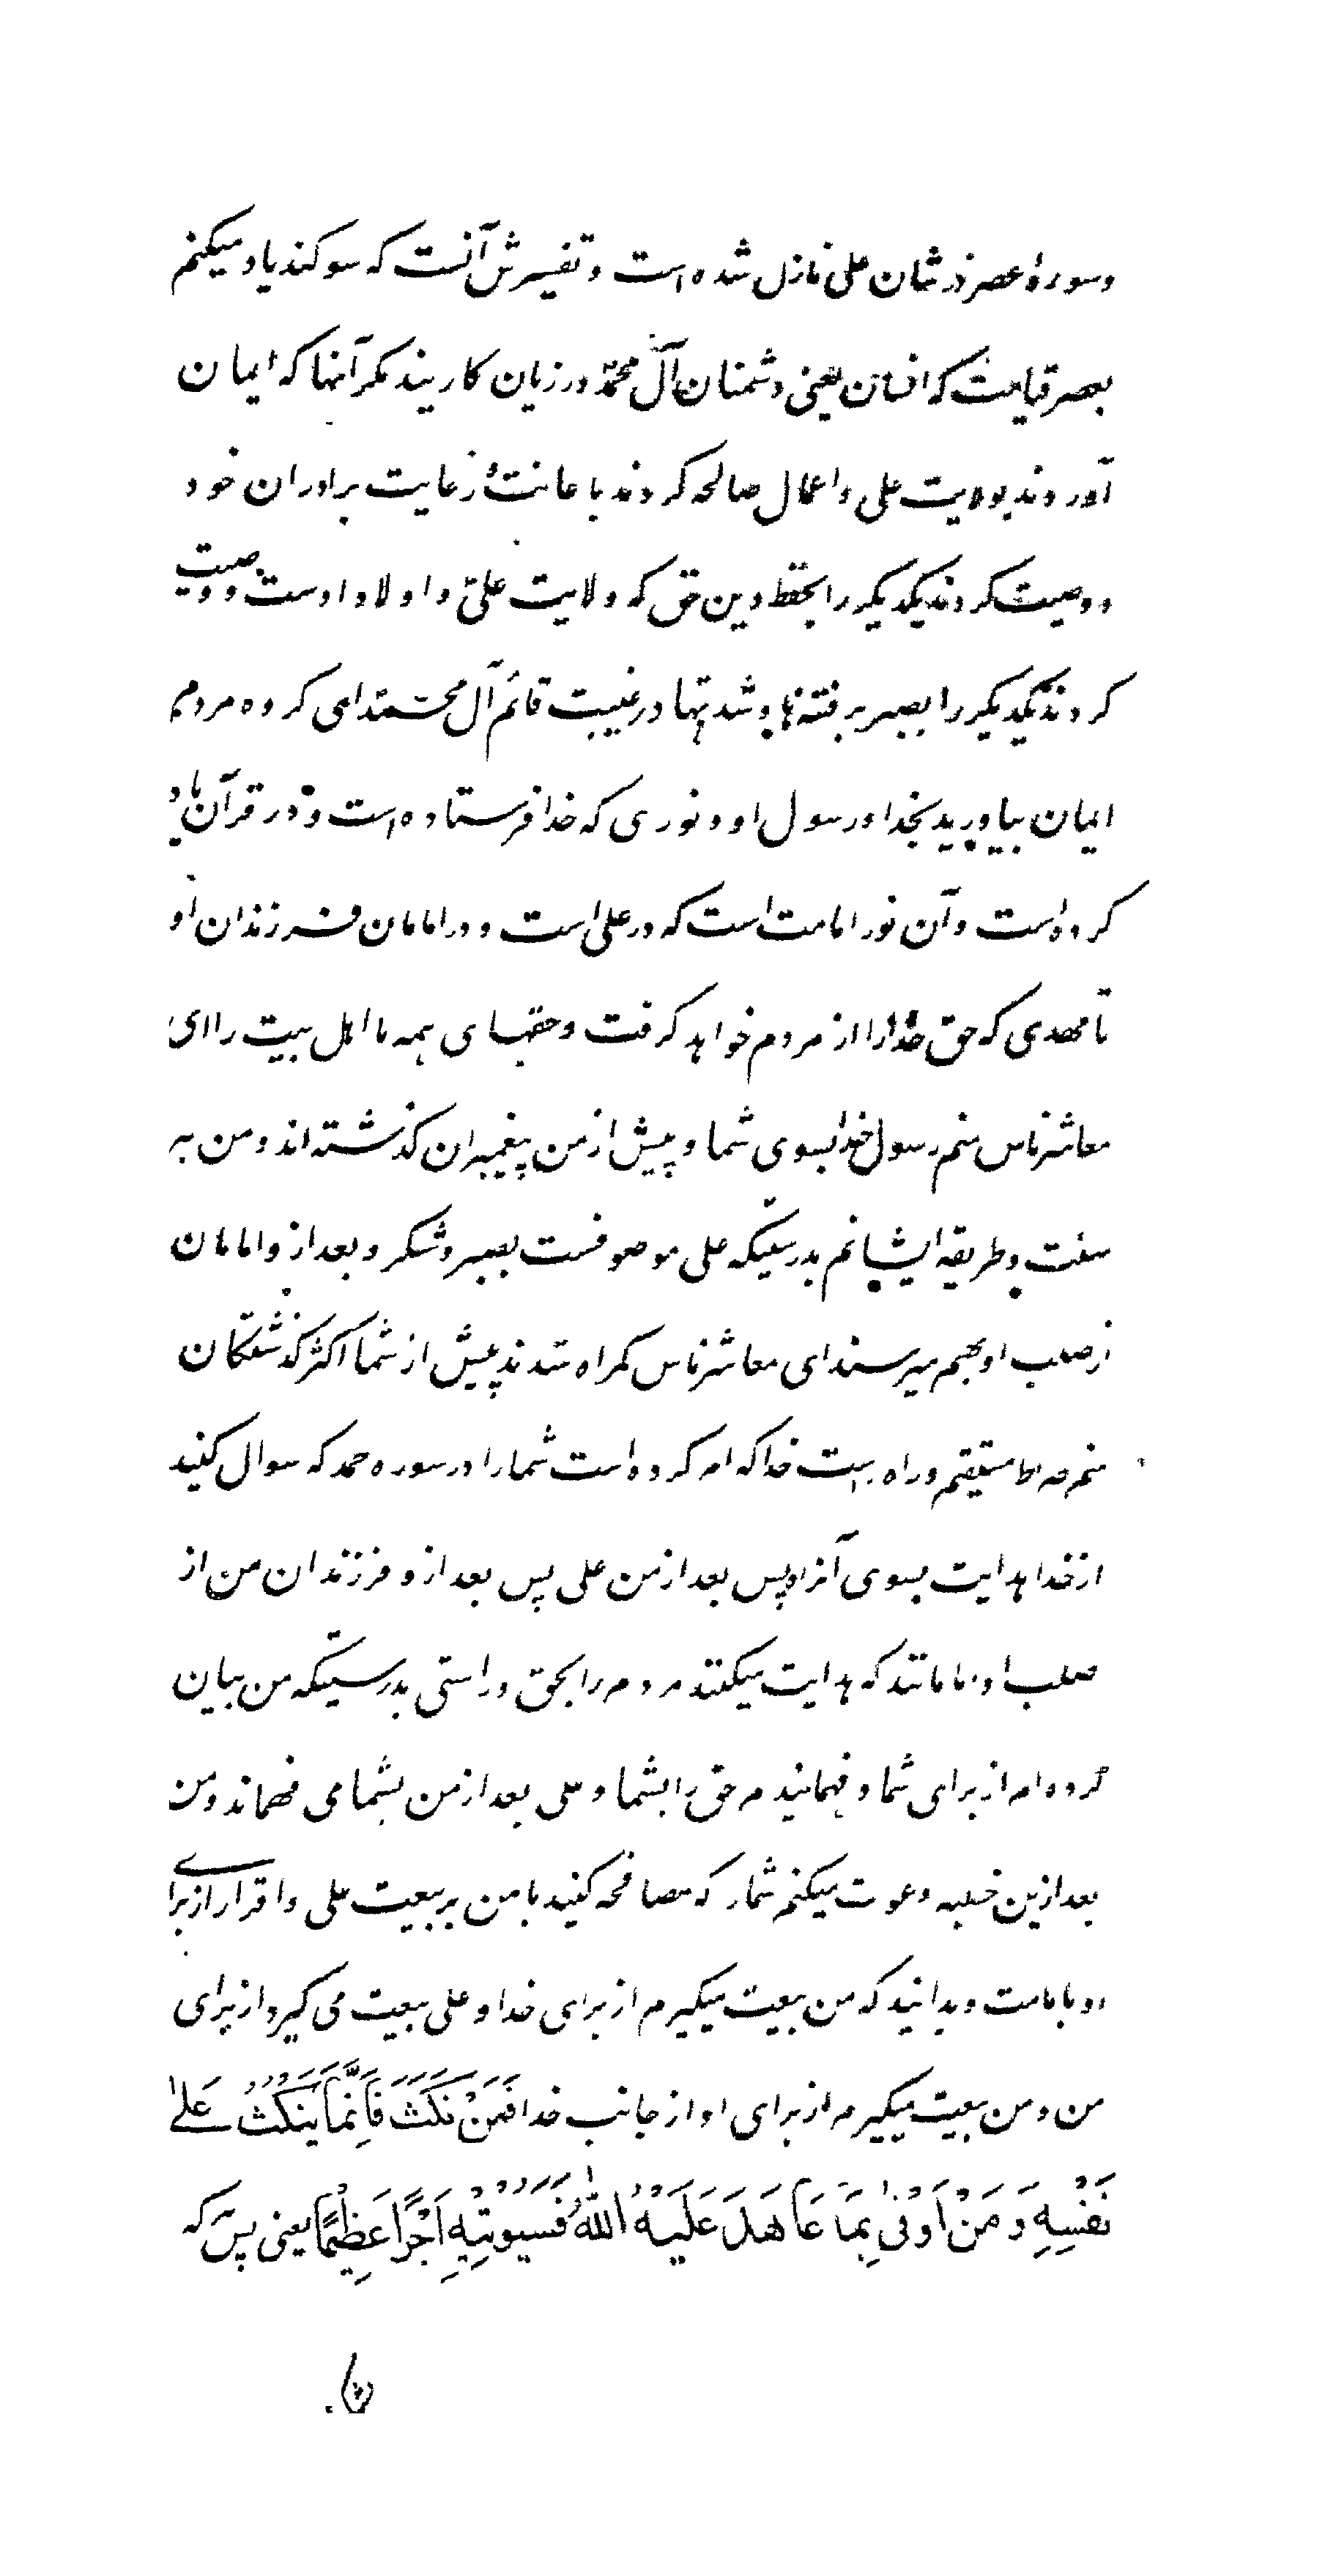 وسورهٔ عصر در شان علی نازل شده است و تفسیرش آنست که سوکند یاد میکنم
بعصر قیامت که انسان یعنی دشمنان آل محمّد در زیان کارینند مکر آنها که ایمان
آوردند بولایت علی و اعمال صالحه کردند باعانت و رعایت برادران خود
و وصیت کردند یکدیکر را بحفظ دین حق که ولایت علی و اولاد اوست و وصیت
کردند یکدیکر را بصبر بر فتنه‌ها و شدتها در غیبت قائم آل محمّد ای کروه مردم
ایمان بیاورید بخدا و رسول او و نوری که خدا فرستاده است و در قرآن یاد
کرده است و آن نور امامت است که در علی است و در امامان فرزندان او
تا مهدی که حق خدا را از مردم خواهد کرفت و حقهای همه ما اهل بیت را ای
معاشر ناس منم رسول خدا بسوی شما و پیش از من پیغمبران کذشته اند و من به
سنت و طریقه ایشانم بدرستیکه علی موصوفست بصبر و شکر و بعد از و امامان
از صلب او بهم میرسند ای معاشر ناس کمراه شدند پیش از شما اکثر کذشتکان
منم صراط مستقیم و راه راست خدا که امر کرده است شما را در سوره حمد که سوال کنید
از خدا هدایت بسوی آنرا و پس بعد از من علی پس بعد از و فرزندان من از
صلب او امامانند که هدایت میکنند مردم را بحق و راستی بدرستیکه من بیان
کرده ام از برای شما و فهمانیدم حق را بشما و علی بعد از من بشما می فهماند و من
بعد ازین خطبه دعوت میکنم شما را که مصافحه کنید با من بر بیعت علی و اقرار از برای
او بامامت و بدانید که من بیعت میکیرم از برای خدا و علی بیعت می کیرد از برای
من و من بیعت میکیرم از برای او از جانب خدا فَمَنْ نَكَثَ فَاِنَّمَا يَنْكُثُ عَلىٰ
نَفْسِهِ وَمَنْ اَوْفىٰ بِمَا عَاهَدَ عَلَيْهُ اللّٰهَ فَسَيُؤْتِيْهِ اَجْرًا عَظِيْمًا یعنی پس که